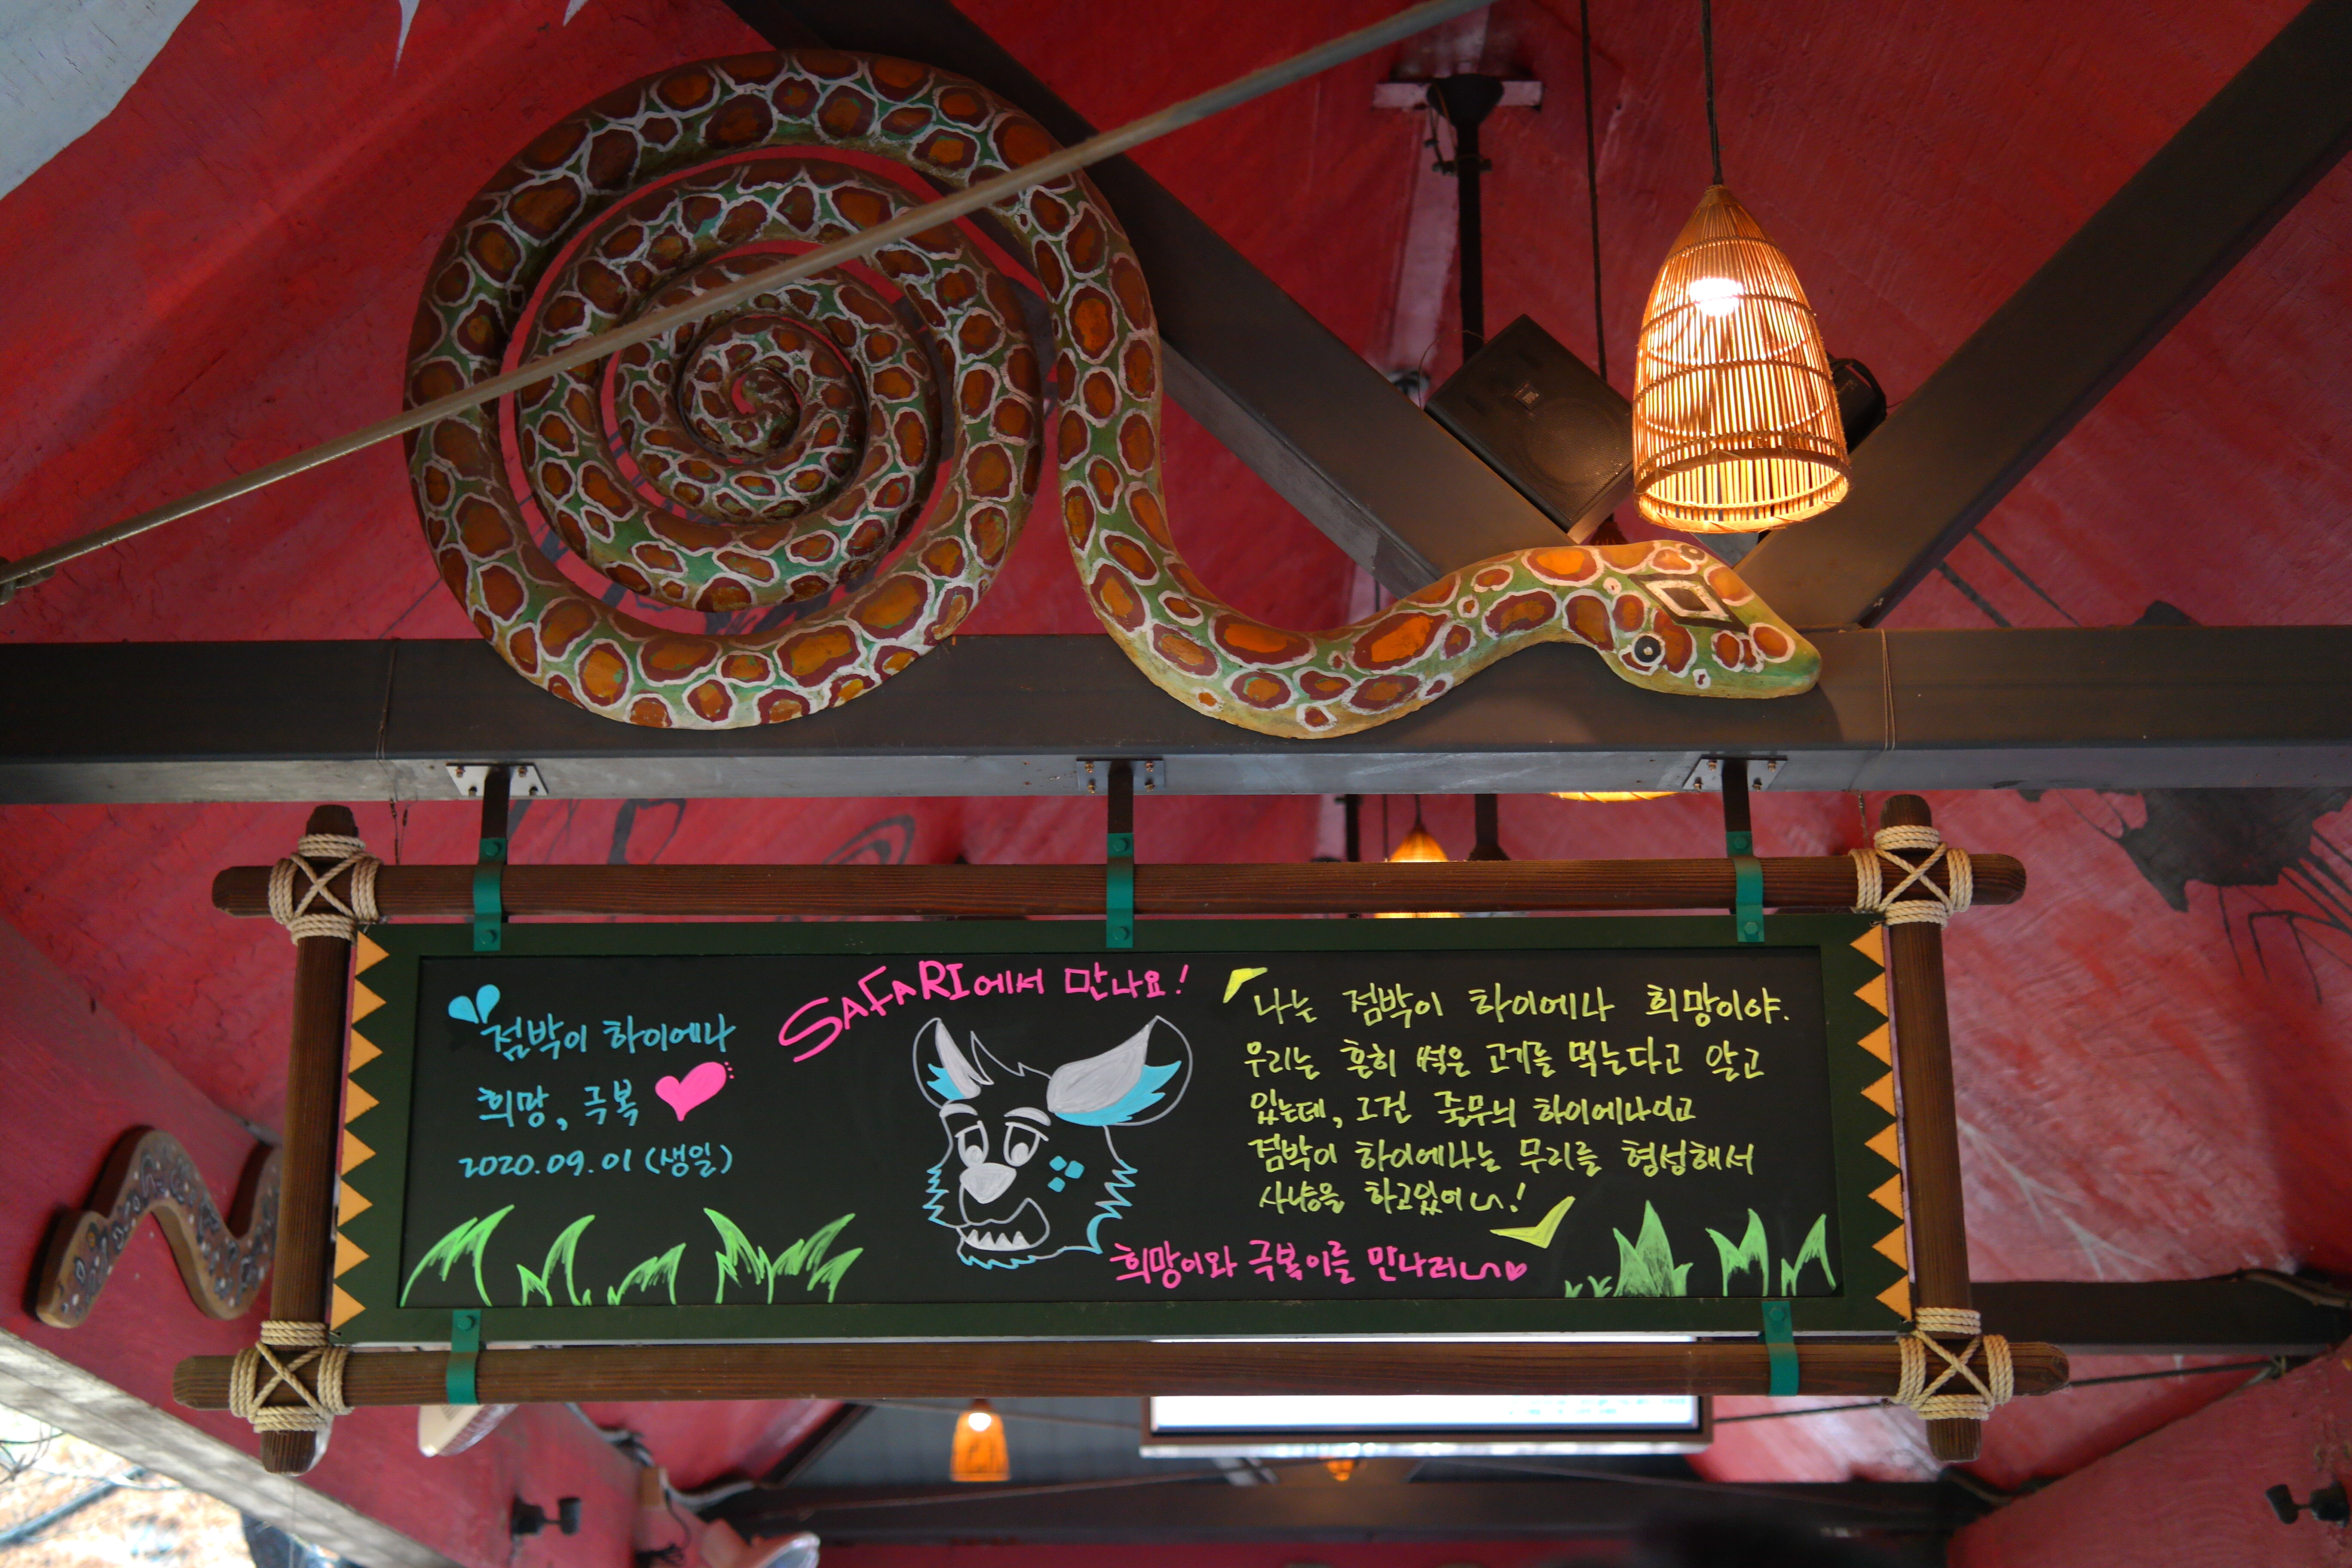 점박이 하이에나
희망, 극복
2020.09.01 (생일)
SAFARI에서 만나요!
나는 점박이 하이에나 희망이야.
우리는 흔히 썩은 고기를 먹는다고 알고
있는데, 그건 줄무늬 하이에나이고
점박이 하이에나는 무리를 형성해서
사냥을 하고있어~!
희망이와 극복이를 만나러~♡